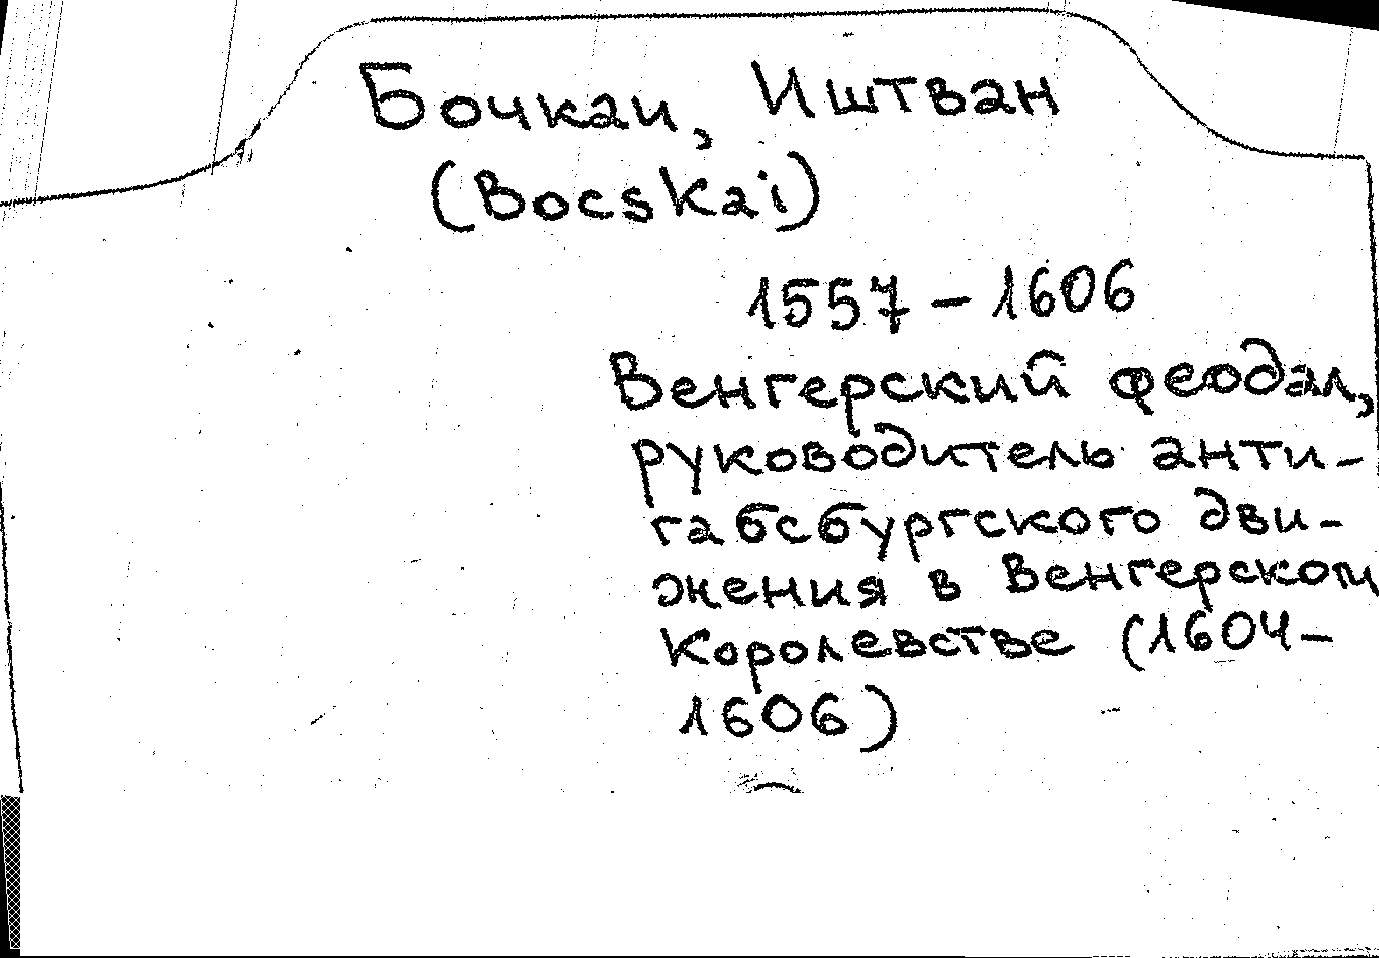 Бочкаи, Иштван
(Bocskai)
1557 - 1606
Венгерский феодал,
руководитель анти-
габсбургского дви-
жения в Венгерском
Королевстве (1604-
1606)